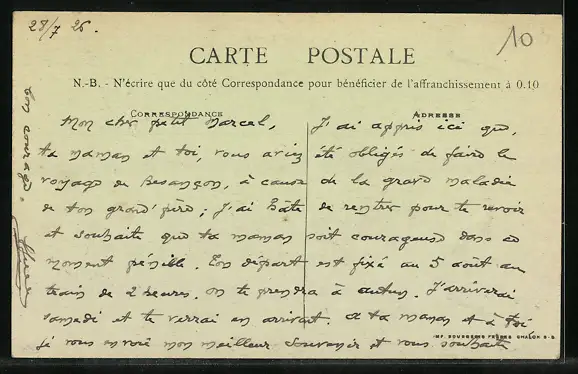 28/7 26.
10
CARTE POSTALE
N.-B. - N'écrire que du côté Correspondance pour bénéficier de l'affranchissement à 0.10
CORRESPONDANCE
ADRESSE
Mon cher petit Marcel, J'ai appris ici que,
ta maman et toi, vous aviez été obligés de faire le
voyage de Besançon, à cause de la grave maladie
de ton grand'père; J'ai hâte de rentrer pour te revoir
et souhaite que ta maman soit courageuse dans ce
moment pénible. Ton départ est fixé au 5 août au
train de 2 heures. On te prendra à Autun. J'arriverai
samedi et te verrai en arrivant. A ta maman et à toi
je vous envoie mon meilleur souvenir et vous souhaite
bon courage.
IMP. BOURGEOIS FRÈRES CHALON-S-S.